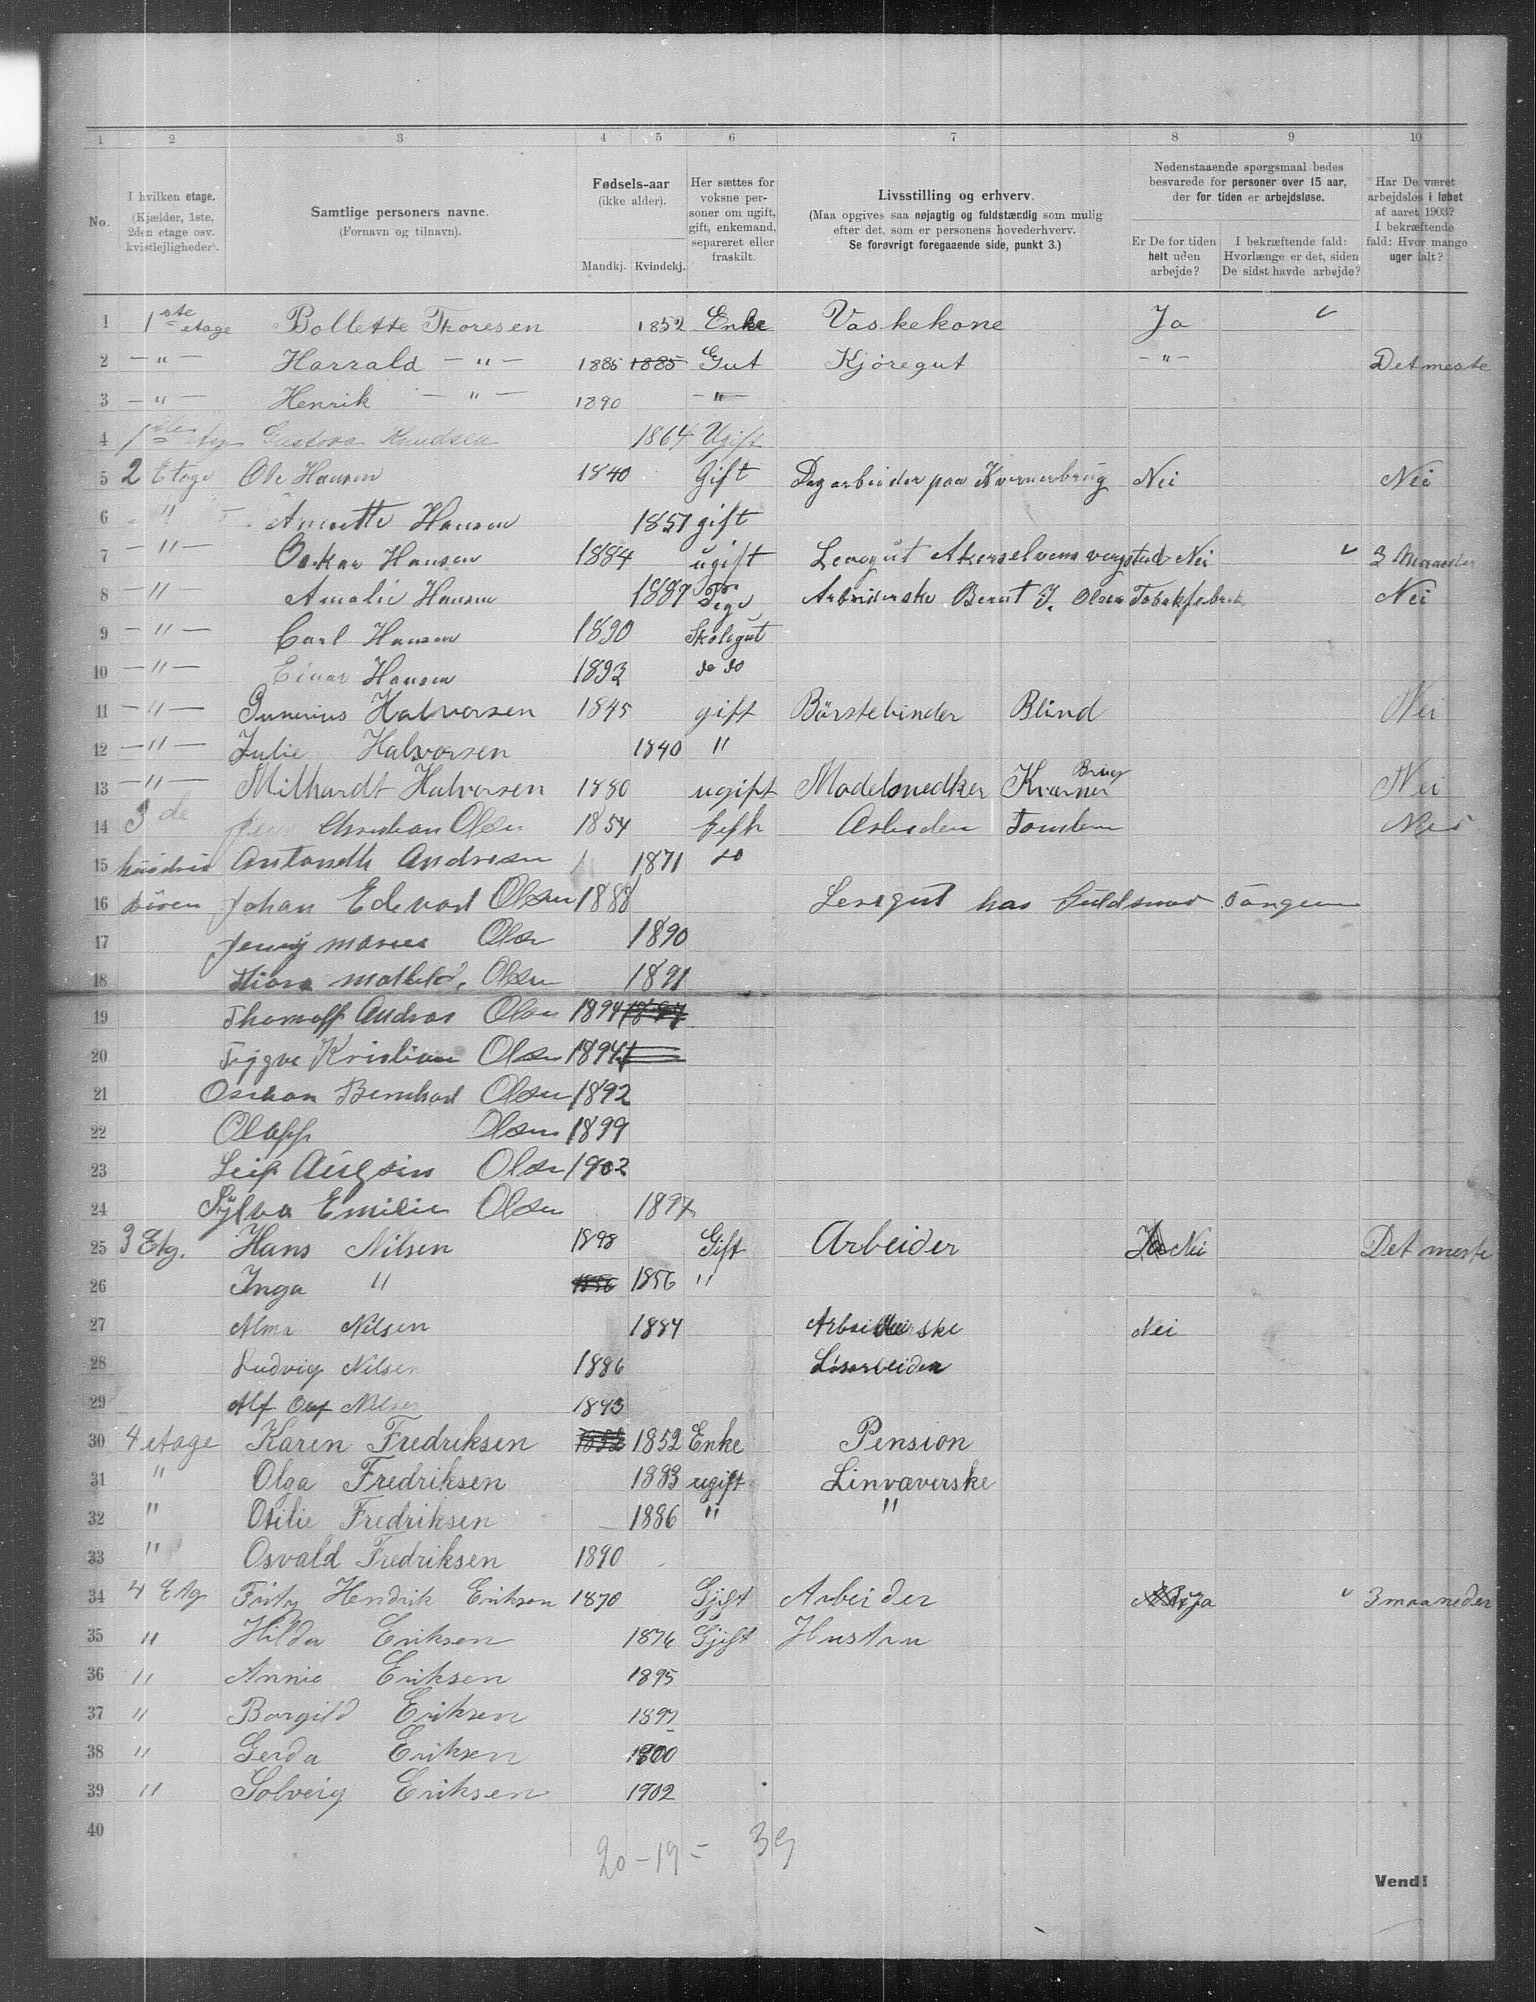 1 2 3 4 5 6 7 8 9 10
No.
I hvilken etage. (Kjælder, 1ste, 2den etage osv. kvistleiligheder).
Samtlige personers navne. (Fornavn og tilnavn).
Fødsels-aar (ikke alder).
Mandkj. Kvindekj.
Her sættes for voksne personer om ugift, gift, enkemand, separeret eller fraskilt.
Livsstilling og erhverv.
(Maa opgives saa nøjagtig og fuldstændig som mulig efter det, som er personens hovederhverv. Se forøvrigt foregaaende side, punkt 3.)
Nedenstaaende spørgsmaal bedes besvarede for personer over 15 aar, der for tiden er arbejdsløse.
Er De for tiden helt uden arbejde?
I bekræftende fald: Hvorlænge er det, siden De sidst havde arbejde?
Har De været arbejdsløs i løbet af aaret 1903? I bekræftende fald: Hvor mange uger ialt?
1 1ste etage Bollette Thoresen 1852 Enke Vaskekone Ja
2 — " — Harrald — " — 1885 1885 Gut Kjøregut — " — Det meste
3 — " — Henrik — " — 1890 — " —
4 Gustava Knudsen 1864 Ugift
5 2 Etage Ole Hansen 1840 Gift Dagarbeider paa Kværnerbrug Nei Nei
6 " Hansen 1851 gift
7 — " — Oskar Hansen 1884 ugift Læregut Akerselvens Nei 3 Maaneder
8 — " — Amalie Hansen 1887 Pige Arbeiderske Bernt J. Olsen Tobakfabrik Nei
9 — " — Carl Hansen 1890 Skolegut
10 — " — Einar Hansen 1893 do do
11 — " — Gunerius Halvorsen 1845 gift Børstebinder Blind Nei
12 — " — Julie Halvorsen 1840 "
13 — " — Milhardt Halvorsen 1880 ugift Modelsnedker Kværner Brug Nei
14 3de Christian Olsen 1854 Gift Nei
15 Andresen 1871 do
16 Johan Edvard Olsen 1888 Læregut hos Guldsmed
17 Jenny Marie Olsen 1890
18 Olsen 1891
19 Olsen 1894
20 Kristian Olsen 1894
21 Bernhard Olsen 1892
22 Olaff Olsen 1899
23 Leif Olsen 1902
24 Sylva Emilie Olsen 1897
25 3 Etg. Hans Nilsen 1898 Gift Arbeider Nei Det meste
26 Inga " 1856 1856 "
27 Alma Nilsen 1884 Arbeiderske Nei
28 Ludvig Nilsen 1886 Løsarbeider
29 Alf Nilsen 1893
30 4 etage Karen Fredriksen 1852 1852 Enke Pension
31 " Olga Fredriksen 1883 ugift Linvæverske
32 " Otilie Fredriksen 1886 " "
33 " Osvald Fredriksen 1890
34 4 Etg Fritz Hendrik Erikson 1870 Gjift Arbeider Ja 3 maaneder
35 " Hilda Eriksen 1876 Gjift Hustru
36 " Annie Eriksen 1895
37 " Borgild Eriksen 1897
38 " Gerda Eriksen 1900
39 " Solveig Eriksen 1902
40
20 - 19 = 39
Vend!